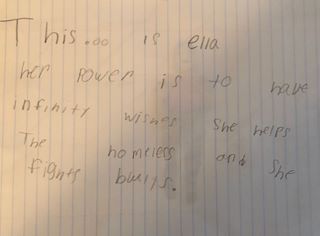 This... is ella
her power is to have
infinity wishes she helps
The homeless and she
fights bullys.